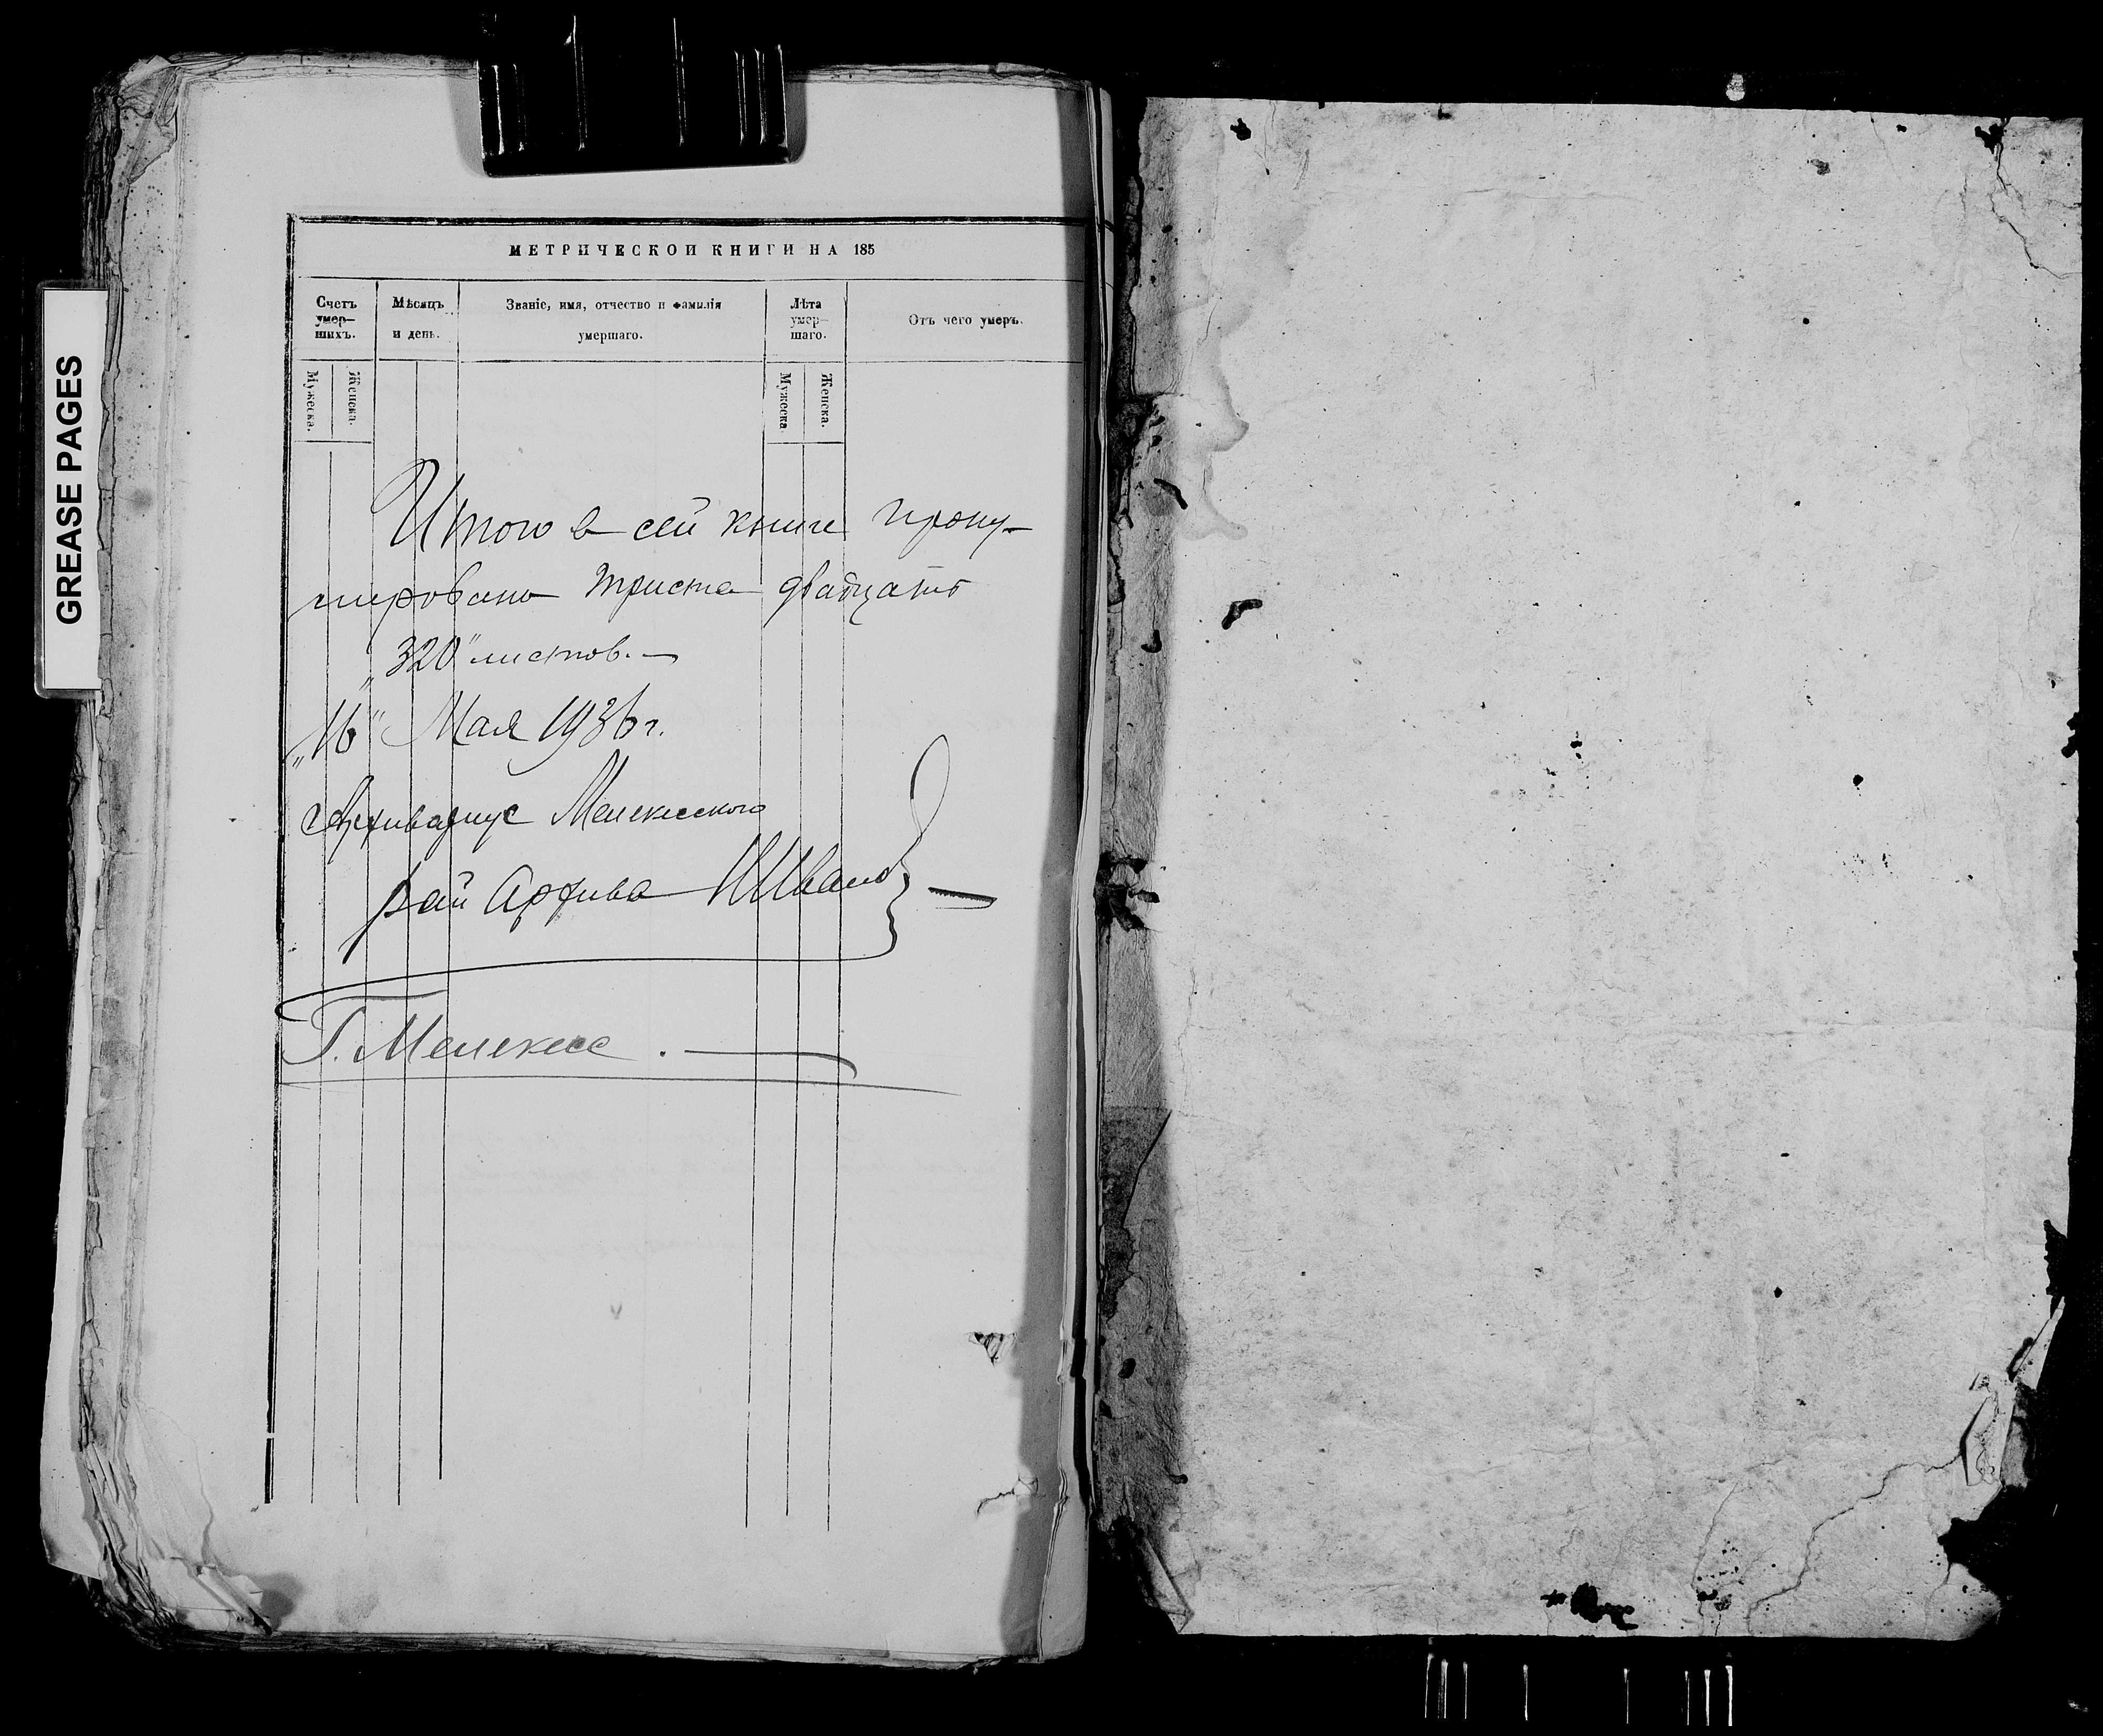 GREASE PAGES
МЕТРИЧЕСКОЙ КНИГИ НА 185
Счетъ умер— шихъ.
Мѣсяцъ и день.
Званіе, имя, отчество и фамилія умершаго.
Лѣта умер— шаго.
Отъ чего умеръ.
Мужеска.
Женска.
Мужеска.
Женска.
Итого в сей книге прону-
мировано триста двадцать
„320" листов. —
„16" Мая 1936 г.
Архивариус Мелекесского
рай Архива ИИванов
Г. Мелекесс . —